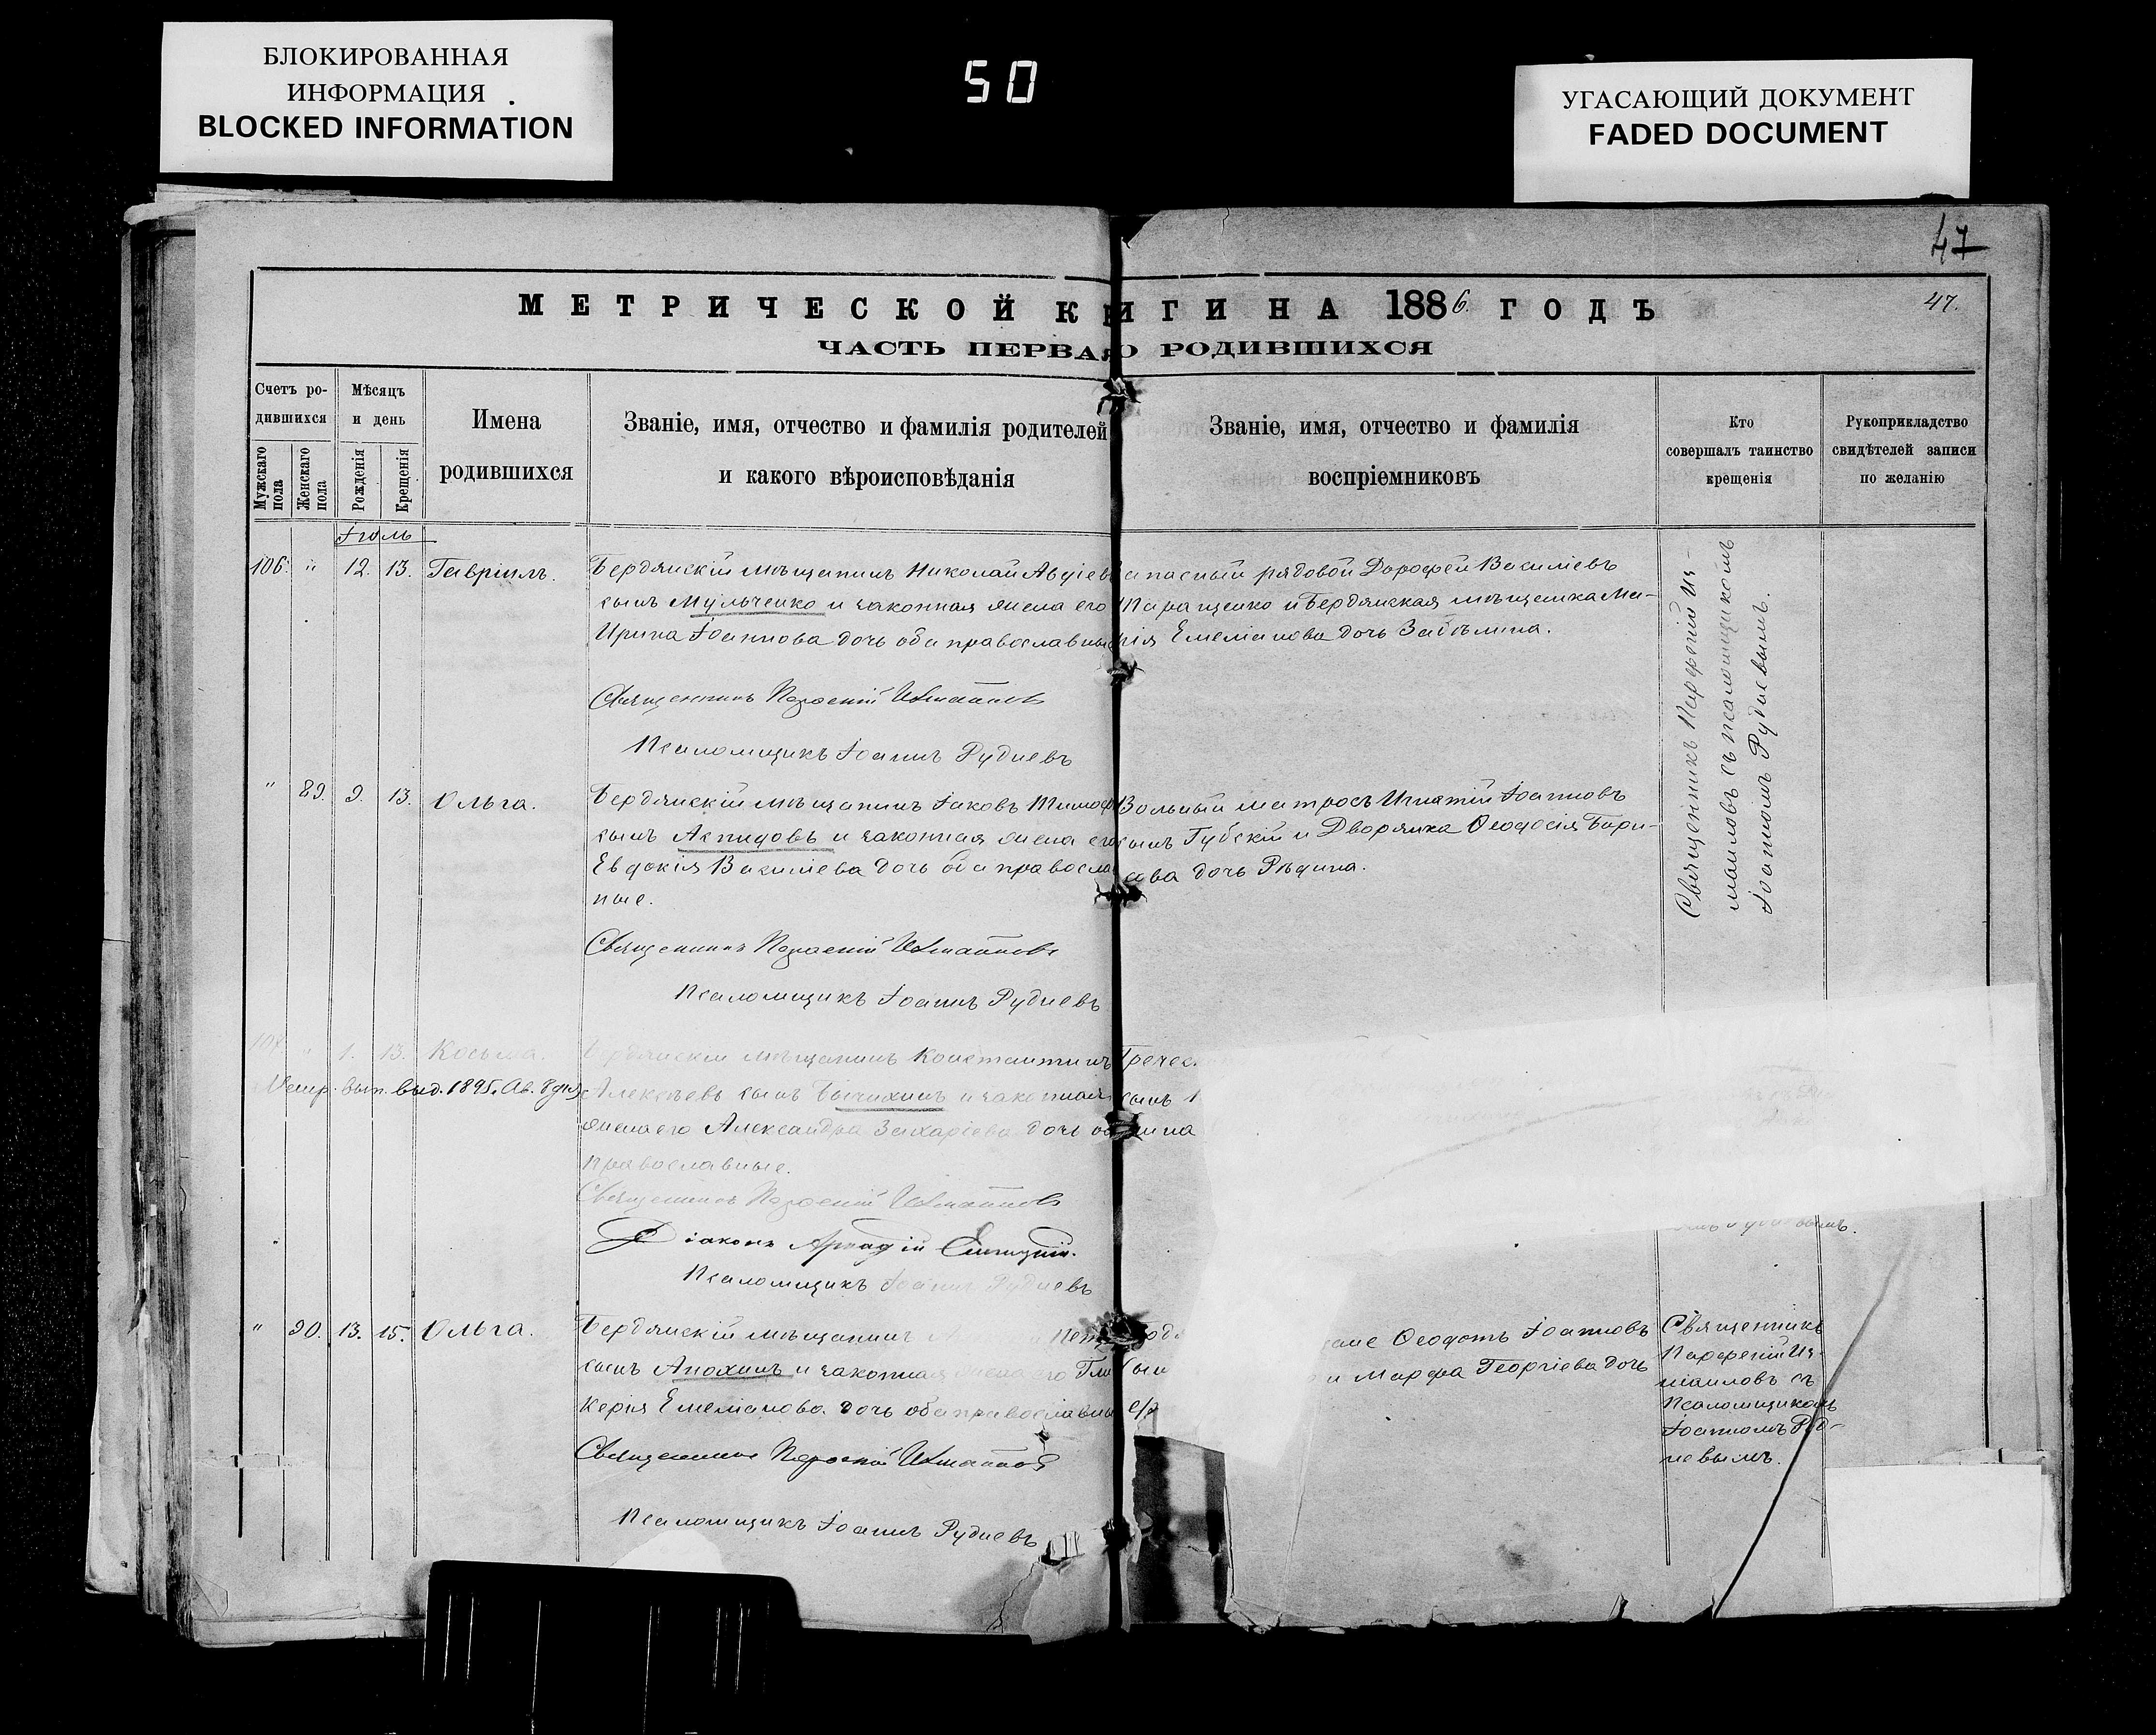 БЛОКИРОВАННАЯ
ИНФОРМАЦИЯ
BLOCKED INFORMATION
50
УГАСАЮЩИЙ ДОКУМЕНТ
FADED DOCUMENT
47
МЕТРИЧЕСКОЙ КНИГИ НА 1886 ГОДЪ
47.
ЧАСТЬ ПЕРВАЯ О РОДИВШИХСЯ
Счетъ ро-
дившихся
Мужскаго пола
Женскаго пола
Мѣсяцъ
и день
Рожденія
Крещенія
Имена
родившихся
Званіе, имя, отчество и фамилія родителей
и какого вѣроисповѣданія
Званіе, имя, отчество и фамилія
воспріемниковъ
Кто
совершалъ таинство
крещенія
Рукоприкладство
свидѣтелей записи
по желанію
Іюль
106. " 12. 13. Гавріилъ.
Бердянскій мѣщанинъ Николай Авдіевъ
сынъ Мульченко и законная жена его
Ирина Іоаннова дочь оба православные
Священникъ Парѳеній Измаиловъ
Псаломщикъ Іоаннъ Рудневъ
Запасный рядовой Дорофей Василіевъ
Паращенко и Бердянская мѣщанка Ма-
рія Емеліанова дочь Забѣлина.
Священникъ Парѳеній Из-
маиловъ съ псаломщикомъ
Іоанномъ Рудневымъ.
" 89. 9. 13. Ольга.
Бердянскій мѣщанинъ Іаковъ Тимоф
сынъ Аспидовъ и законная жена его
Евдокія Василіева дочь оба правосла
ные.
Священникъ Парѳеній Измаиловъ
Псаломщикъ Іоаннъ Рудневъ
Вольный матросъ Игнатій Іоанновъ
сынъ Губскій и Дворянка Ѳеодосія Бори-
сова дочь Рѣдина.
107. " 1. 13. Косьма.
Метр. вып. выд. 1895. Ав. 8 дня
Бердянскій мѣщанинъ Константинъ
Алексѣевъ сынъ Бычихинъ и законная
жена его Александра Захаріева дочь оба
православные.
Священникъ Парѳеній Измаиловъ
Діаконъ Аркадій
Псаломщикъ Іоаннъ Рудневъ
Гречес
сынъ
" 90. 13. 15. Ольга.
Бердянскій мѣщанинъ
сынъ Анохинъ и законная жена его Гли
керія Емеліанова дочь оба православны
Священникъ Парѳеній Измаиловъ
Псаломщикъ Іоаннъ Рудневъ
Ѳеодотъ Іоанновъ
и Марѳа Георгіева дочь
Священникъ
Парѳеній Из-
маиловъ съ
Псаломщикомъ
Іоанномъ Руд-
невымъ.